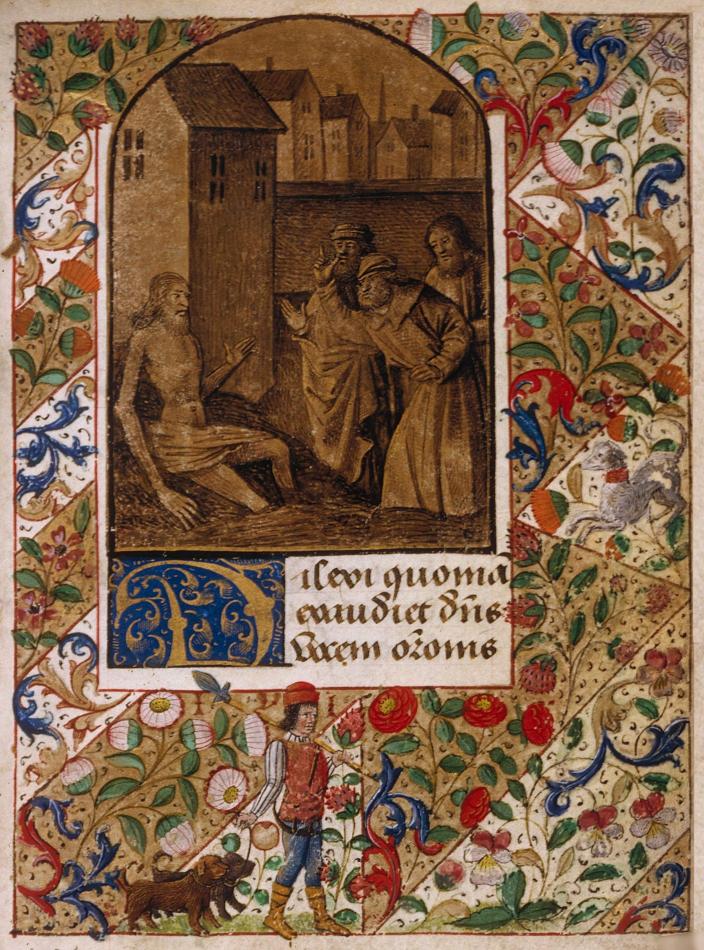 Dilexi quoniā
exaudiet dn̄s
vocem orōnis